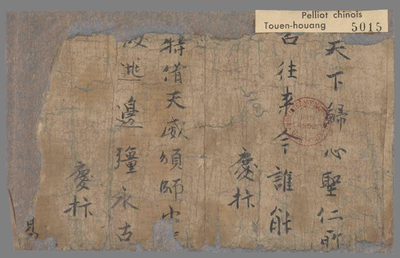 Pelliot chinois
Touen-houang 5015
天下歸心聖仁所
古往來今誰能
慶抃
特借天威領師少
逃邊疆永古
慶抃